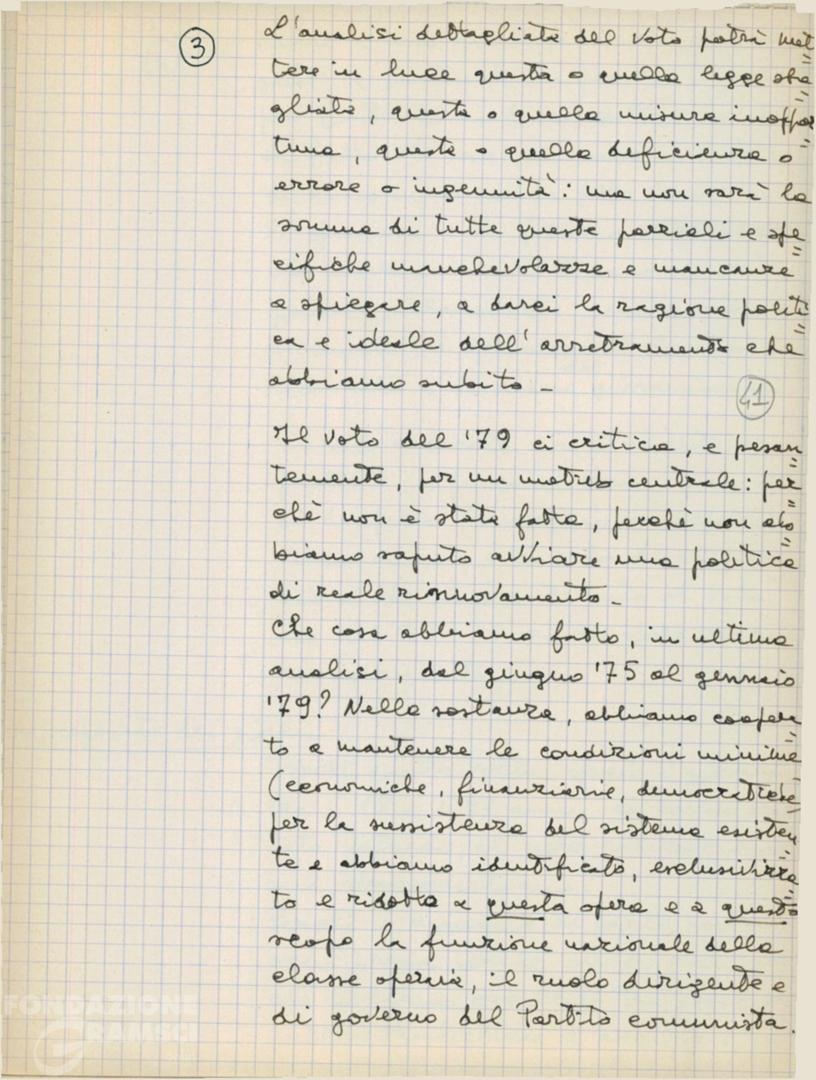 3
L'analisi dettagliata del voto potrà met=
tere in luce questa o quella legge sba=
gliata, questa o quella misura inoppor=
tuna, questa o quella deficienza o
errore o ingenuità: ma non sarà la
somma di tutte queste parziali e spe=
cifiche manchevolezze e mancanze
a spiegare, a darci la ragione politi=
ca e ideale dell'arretramento che
abbiamo subito -
41
Il voto del '79 ci critica, e pesan=
temente, per un motivo centrale: per=
chè non è stata fatta, perchè non ab=
biamo saputo avviare una politica
di reale rinnovamento -
Che cosa abbiamo fatto, in ultima
analisi, dal giugno '75 al gennaio
'79? Nella sostanza, abbiamo coopera=
to a mantenere le condizioni minime
(economiche, finanziarie, democratiche)
per la sussistenza del sistema esisten=
te e abbiamo identificato, esclusivizza=
to e ridotto a questa opera e a questo
scopo la funzione nazionale della
classe operaia, il ruolo dirigente e
di governo del Partito comunista.
FONDAZIONE
GRAMSCI